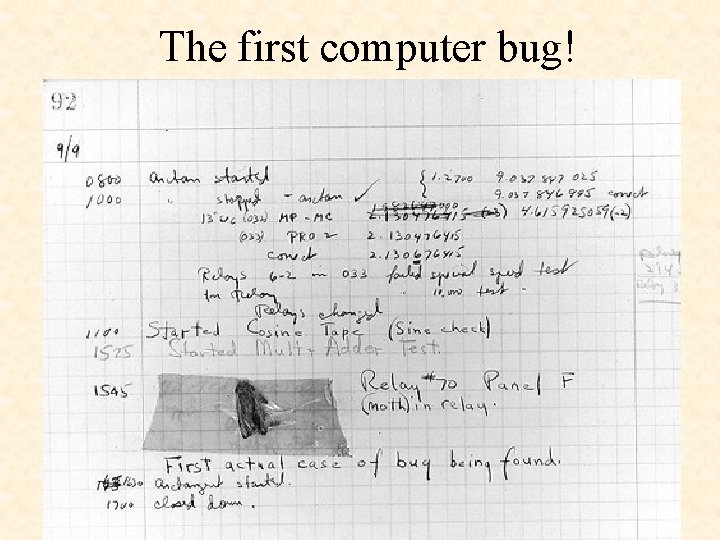 The first computer bug!
92
9/9
0800 antan started { 1.2700 9.037 847 025
1000 " stopped - antan ✓ 9.037 846 995 conect
13"uc (032) MP - MC 2.130476415 (-3) 4.615925059(-2)
(033) PRO 2 2.130476415
conect 2.130676415
Relays 6-2 in 033 failed special speed test
in relay " 11.000 test.
Relays changed
1100 Started Cosine Tape (Sine check)
1525 Started Mult + Adder Test.
1545 Relay #70 Panel F
(moth) in relay.
First actual case of bug being found.
1630 antangent started.
1700 closed down.
Relay
2145
Relay 3